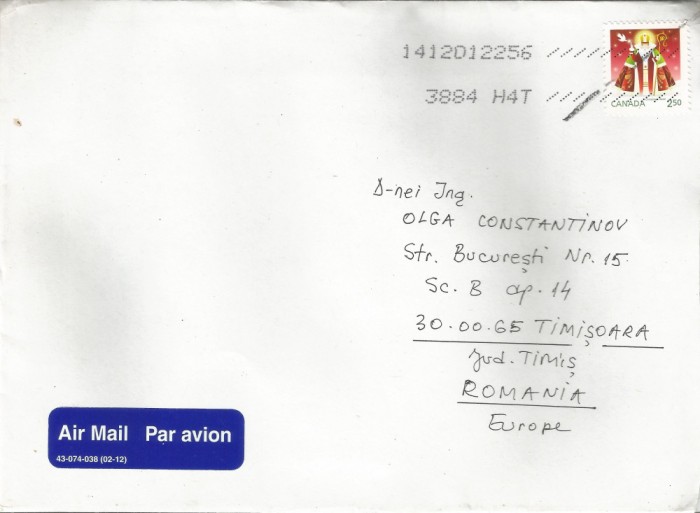 1412012256
3884 H4T
CANADA 2.50
D-nei Ing.
OLGA CONSTANTINOV
Str. București Nr. 15.
Sc. B ap. 14
30.00.65 TIMIȘOARA
Jud. TIMIȘ
ROMANIA
Europe
Air Mail Par avion
43-074-038 (02-12)